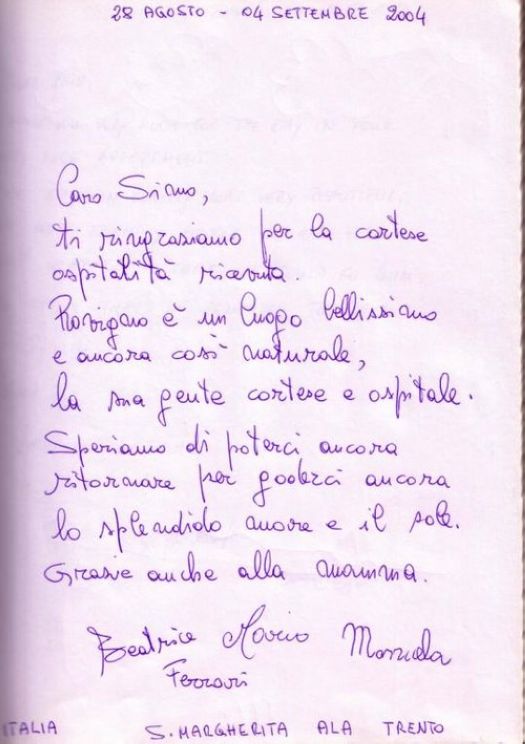 28 AGOSTO - 04 SETTEMBRE 2004
Caro Sirno,
ti ringraziamo per la cortese
ospitalità ricevuta.
Rovigno è un luogo bellissimo
e ancora così naturale,
la sua gente cortese e ospitale.
Speriamo di poterci ancora
ritornare per goderci ancora
lo splendido mare e il sole.
Grazie anche alla mamma.
Beatrice Mario
Ferrari
ITALIA S. MARGHERITA ALA TRENTO